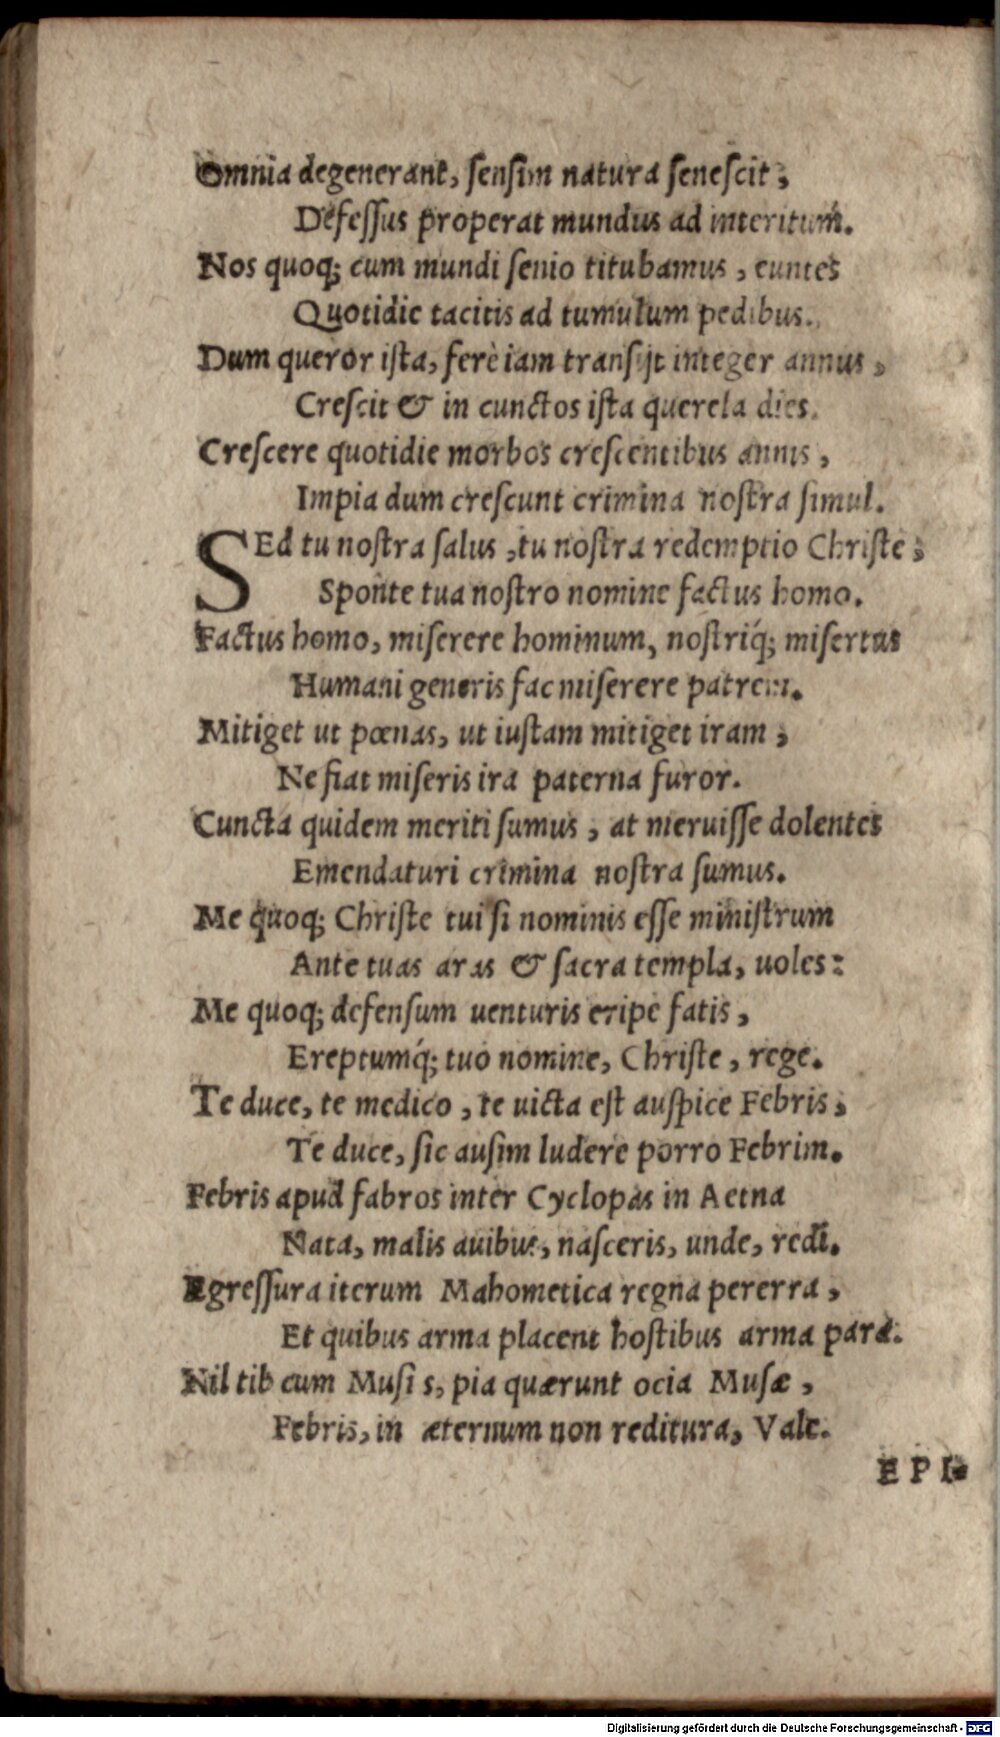 Omnia degenerant, senſim natura ſeneſcit,
Defeſſus properat mundus ad interitum.
Nos quoq; cum mundi ſenio titubamus, euntes
Quotidie tacitis ad tumulum pedibus.
Dum queror iſta, ferè iam tranſijt integer annus,
Creſcit & in cunctos iſta querela dies.
Creſcere quotidie morbos creſcentibus annis,
Impia dum creſcunt crimina noſtra ſimul.
SEd tu noſtra ſalus, tu noſtra redemptio Chriſte,
Sponte tua noſtro nomine factus homo.
Factus homo, miſerere hominum, noſtriq́; miſertus
Humani generis fac miſerere patrem.
Mitiget ut pœnas, ut iuſtam mitiget iram,
Ne fiat miſeris ira paterna furor.
Cuncta quidem meriti ſumus, at meruiſſe dolentes
Emendaturi crimina noſtra ſumus.
Me quoq; Chriſte tui ſi nominis eſſe miniſtrum
Ante tuas aras & ſacra templa, uoles:
Me quoq; defenſum uenturis eripe fatis,
Ereptumq́; tuo nomine, Chriſte, rege.
Te duce, te medico, te uicta eſt auſpice Febris,
Te duce, ſic auſim ludere porro Febrim.
Febris apud fabros inter Cyclopas in Aetna
Nata, malis auibus, naſceris, unde, redi.
Egreſſura iterum Mahometica regna pererra,
Et quibus arma placent hoſtibus arma para.
Nil tib cum Muſi s, pia quærunt ocia Muſæ,
Febris, in æternum non reditura, Vale.
EPI-
Digitalisierung gefördert durch die Deutsche Forschungsgemeinschaft - DFG